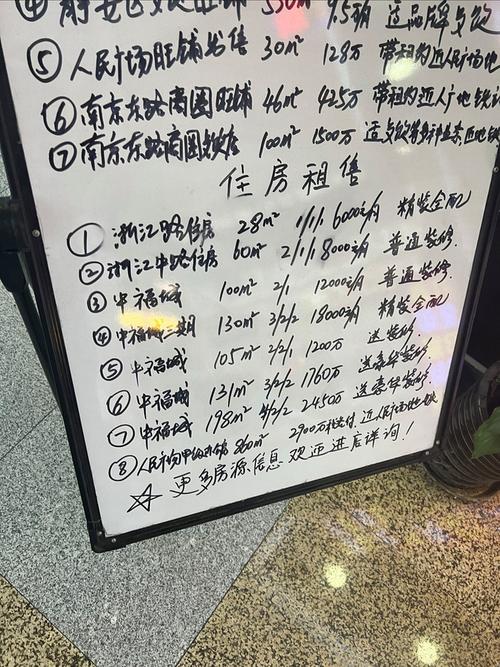 ④ 静安区 550m² 9.5万/月 适品牌
⑤ 人民广场旺铺出售 30m² 128万 带租约近人民广场地
⑥ 南京东路商圈旺铺 46m² 425万 带租约近人广地铁
⑦ 南京东路商圈 100m² 1500万 适 多种业态近地铁
住房租售
① 浙江路住房 28m² 1/1/1 6000元/月 精装全配
② 浙江中路住房 60m² 2/1/1 8000元/月 普通装修.
③ 中福城 100m² 2/1 12000元/月 普通装修.
④ 中福城三期 130m² 3/2/2 18000元/月 精装全配
⑤ 中福城 105m² 2/2/1 1200万 送装修.
⑥ 中福城 131m² 3/2/2 1760万 送豪华装修.
⑦ 中福城 198m² 4/2/2 2450万 送豪华装修.
⑧ 人民广场 860m² 2900万 近人民广场地铁
☆ 更多房源信息 欢迎进店详询!